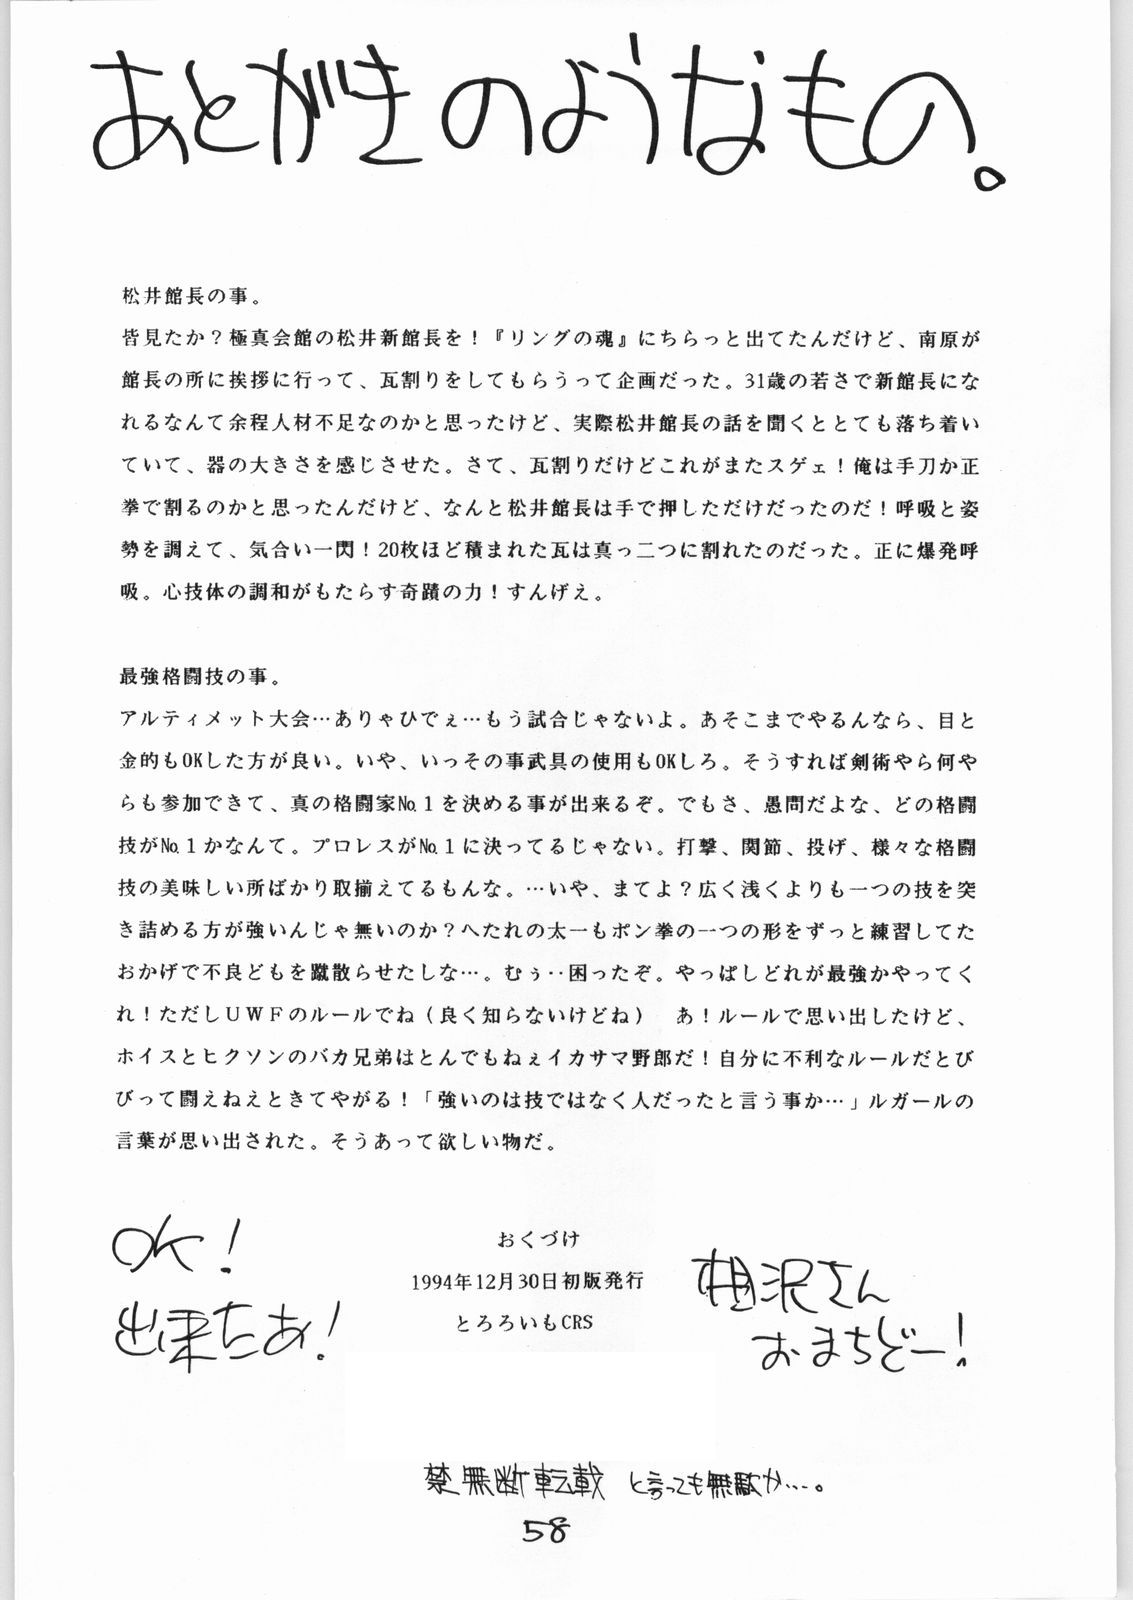 あとがきのようなもの。
松井館長の事。
皆見たか？極真会館の松井新館長を！『リングの魂』にちらっと出てたんだけど、南原が
館長の所に挨拶に行って、瓦割りをしてもらうって企画だった。31歳の若さで新館長にな
れるなんて余程人材不足なのかと思ったけど、実際松井館長の話を聞くととても落ち着い
ていて、器の大きさを感じさせた。さて、瓦割りだけどこれがまたスゲェ！俺は手刀か正
拳で割るのかと思ったんだけど、なんと松井館長は手で押しただけだったのだ！呼吸と姿
勢を調えて、気合い一閃！20枚ほど積まれた瓦は真っ二つに割れたのだった。正に爆発呼
吸。心技体の調和がもたらす奇蹟の力！すんげえ。
最強格闘技の事。
アルティメット大会…ありゃひでぇ…もう試合じゃないよ。あそこまでやるんなら、目と
金的もOKした方が良い。いや、いっその事武具の使用もOKしろ。そうすれば剣術やら何や
らも参加できて、真の格闘家№１を決める事が出来るぞ。でもさ、愚問だよな、どの格闘
技が№１かなんて。プロレスが№１に決ってるじゃない。打撃、関節、投げ、様々な格闘
技の美味しい所ばかり取揃えてるもんな。…いや、まてよ？広く浅くよりも一つの技を突
き詰める方が強いんじゃ無いのか？へたれの太一もポン拳の一つの形をずっと練習してた
おかげで不良どもを蹴散らせたしな…。むぅ‥困ったぞ。やっぱしどれが最強かやってく
れ！ただしＵＷＦのルールでね（良く知らないけどね）　あ！ルールで思い出したけど、
ホイスとヒクソンのバカ兄弟はとんでもねぇイカサマ野郎だ！自分に不利なルールだとび
びって闘えねえときてやがる！「強いのは技ではなく人だったと言う事か…」ルガールの
言葉が思い出された。そうあって欲しい物だ。
OK！
出来たあ！
おくづけ
1994年12月30日初版発行
とろろいもCRS
相沢さん
おまちどー！
禁無断転載　と言っても無駄か…。
58